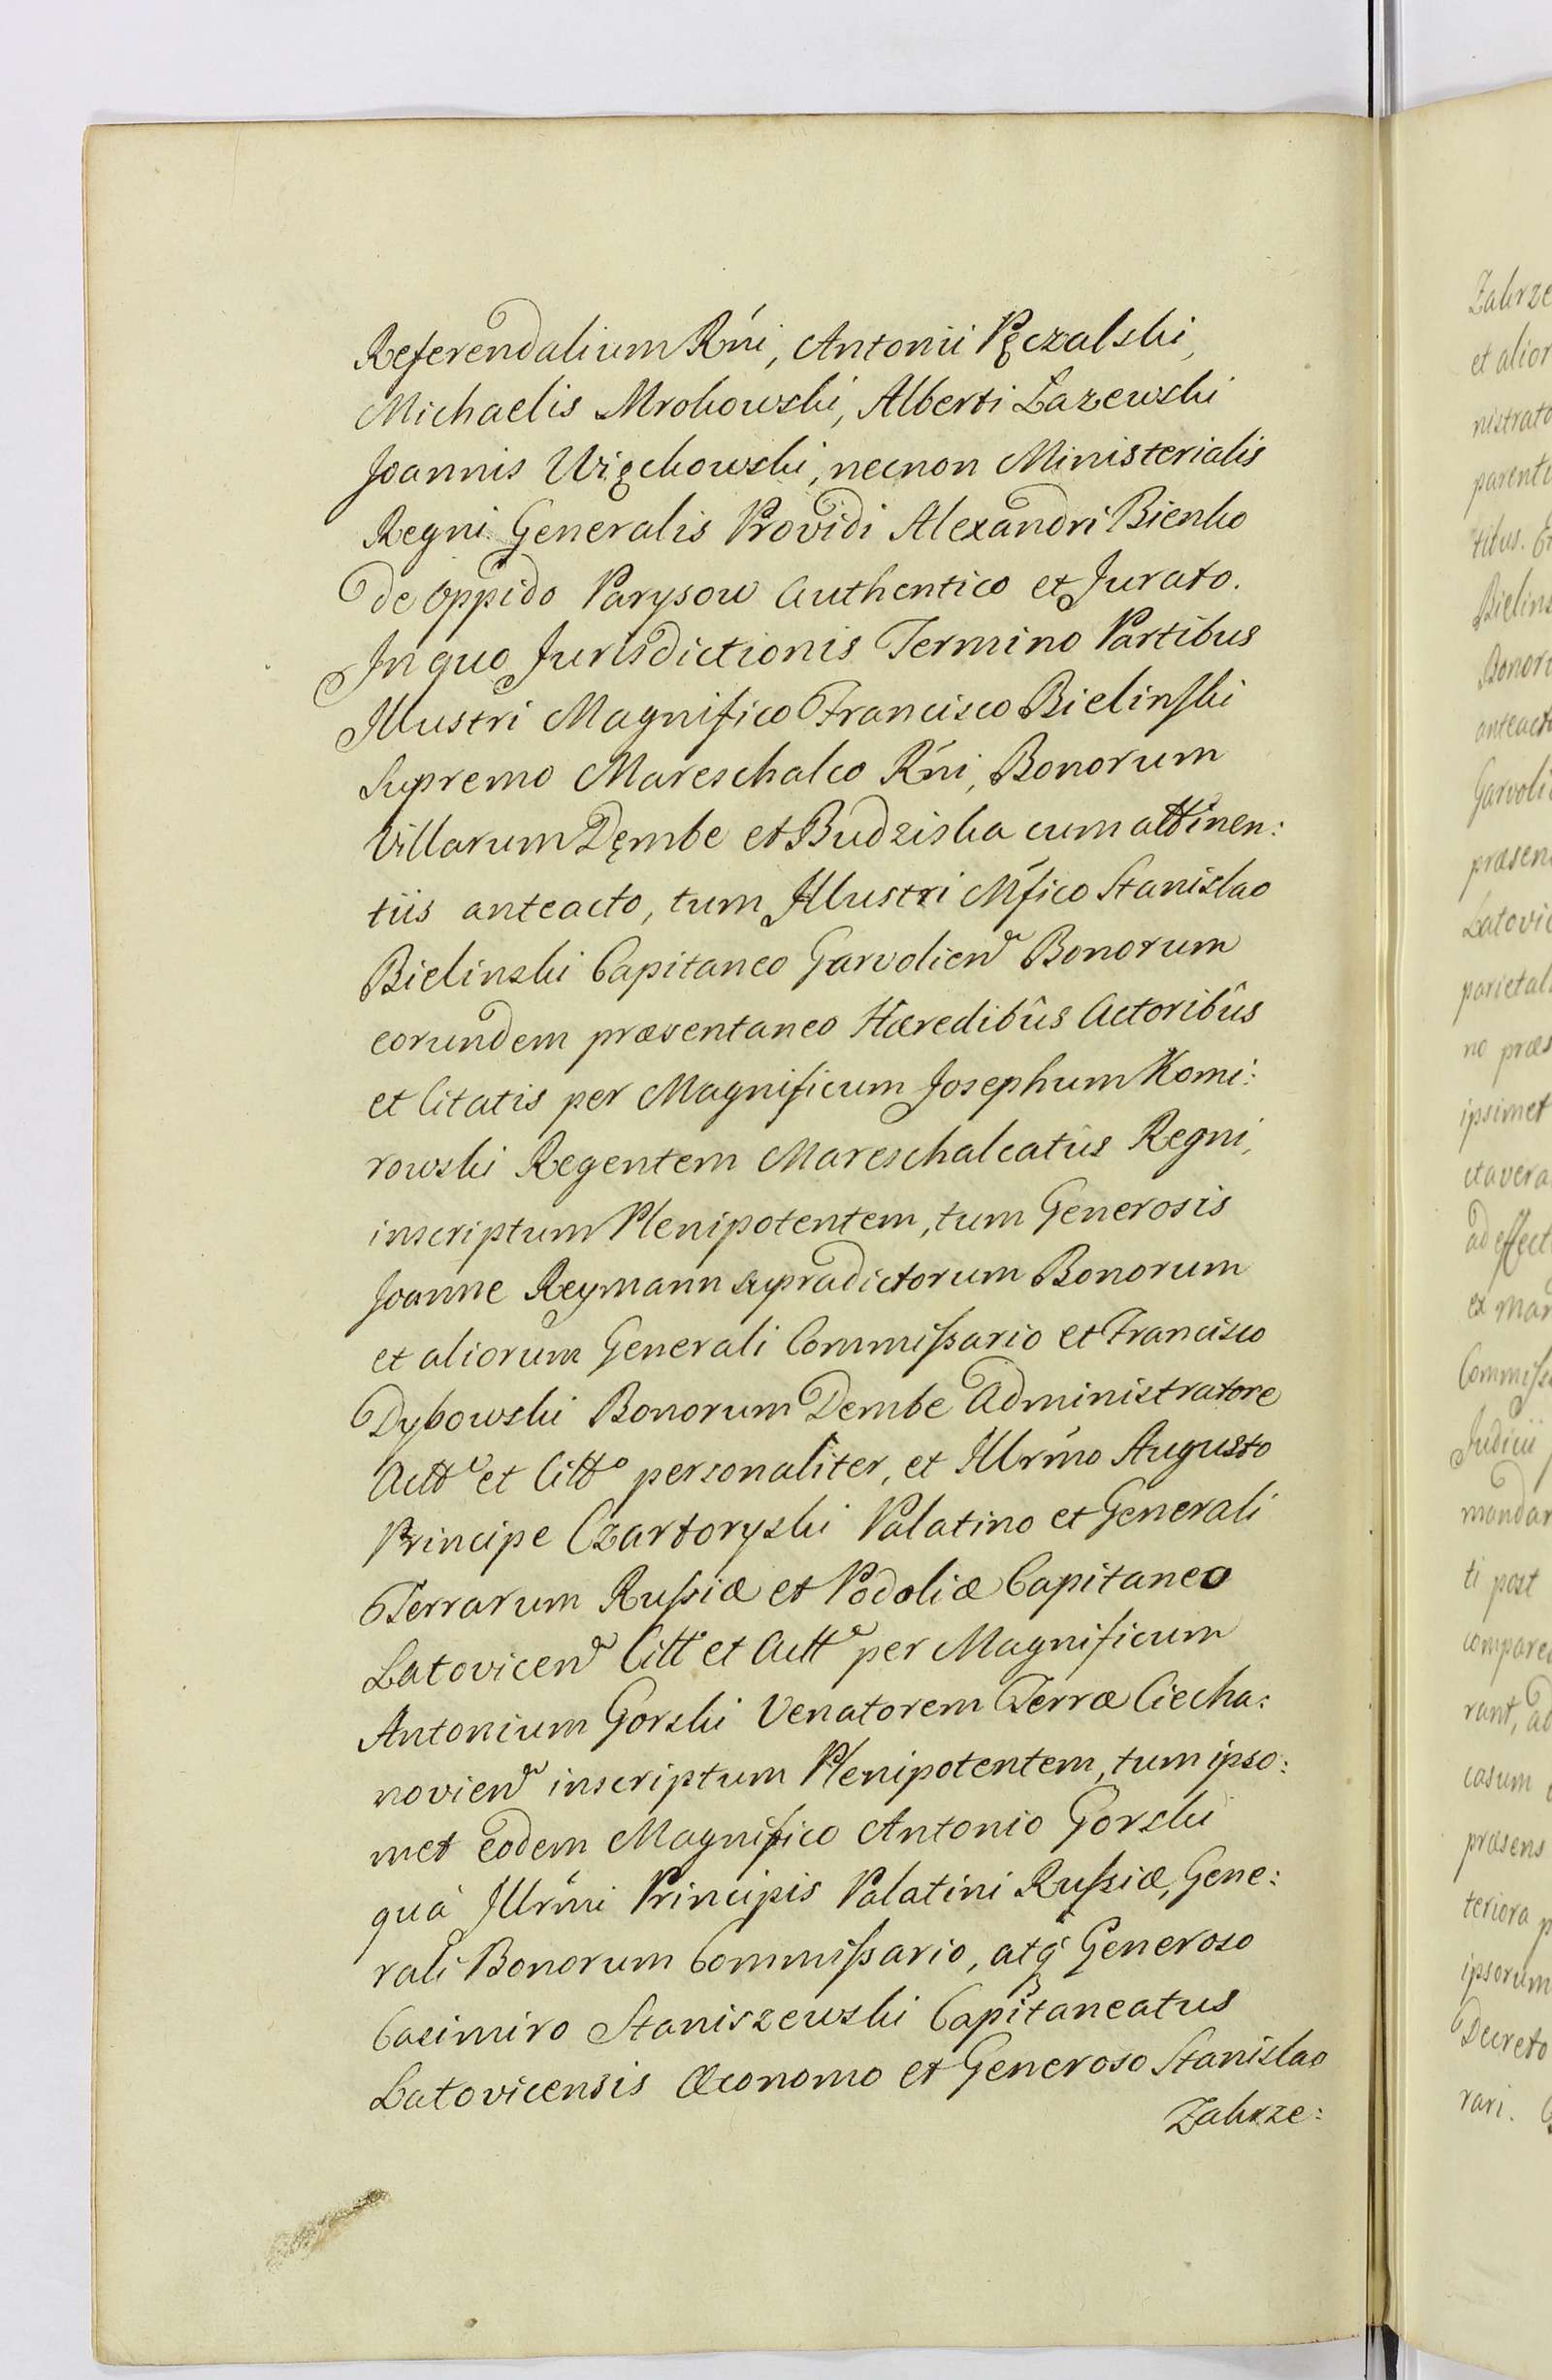 Referendalium Rńi, Antonii Pęczalski,
Michaelis Mrokowski, Alberti Łazewski
Joannis Więckowski, necnon Ministerialis
Regni Generalis Providi Alexandri Bienko
de Oppido Parysow Authentico et Jurato.
In quo Jurisdictionis Termino Partibus
Illustri Magnifico Francisco Bielinſki
Supremo Mareschalco Rńi, Bonorum
Villarum Dęmbe et Budziska cum attinen:
tiis anteacto, tum Illustri Mńfico Stanislao
Bielinski Capitaneo Garvolien Bonorum
eorundem præsentaneo Hæredibûs Actoribûs
et Citatis per Magnificum Josephum Komi:
rowski Regentem Mareschalcatûs Regni,
inscriptum Plenipotentem, tum Generosis
Joanne Reymann supradictorum Bonorum
et aliorum Generali Commiſsario et Francisco
Dybowski Bonorum Dembe Administratore
Actt° et Citt° personaliter, et Illrm̃o Augusto
Principe Czartoryski Palatino et Generali
Terrarum Ruſsiæ et Podoliæ Capitaneo
Latovicen Citt° et Actt° per Magnificum
Antonium Gorski Venatorem Terræ Ciecha:
novien inscriptum Plenipotentem, tum ipso:
met eodem Magnifico Antonio Gorski
quà Illrm̃i Principis Palatini Ruſsiæ, Gene:
rali Bonorum Commiſsario, atq́ Generoso
Casimiro Staniszewski Capitaneatus
Latovicensis Œconomo et Generoso Stanislao
Zakrze:
Zakrze
et alior
nistrato
parenti
Bielins
Bonor
anteact
præsen
Latovic
parietal
no præs
ipsimet
et avera
ad effect
ex man
Commiſs
Judicii
mandar
ti post
compare
rant, ad
casum
præsens
teriora p
ipsorum
Decreto
rari.